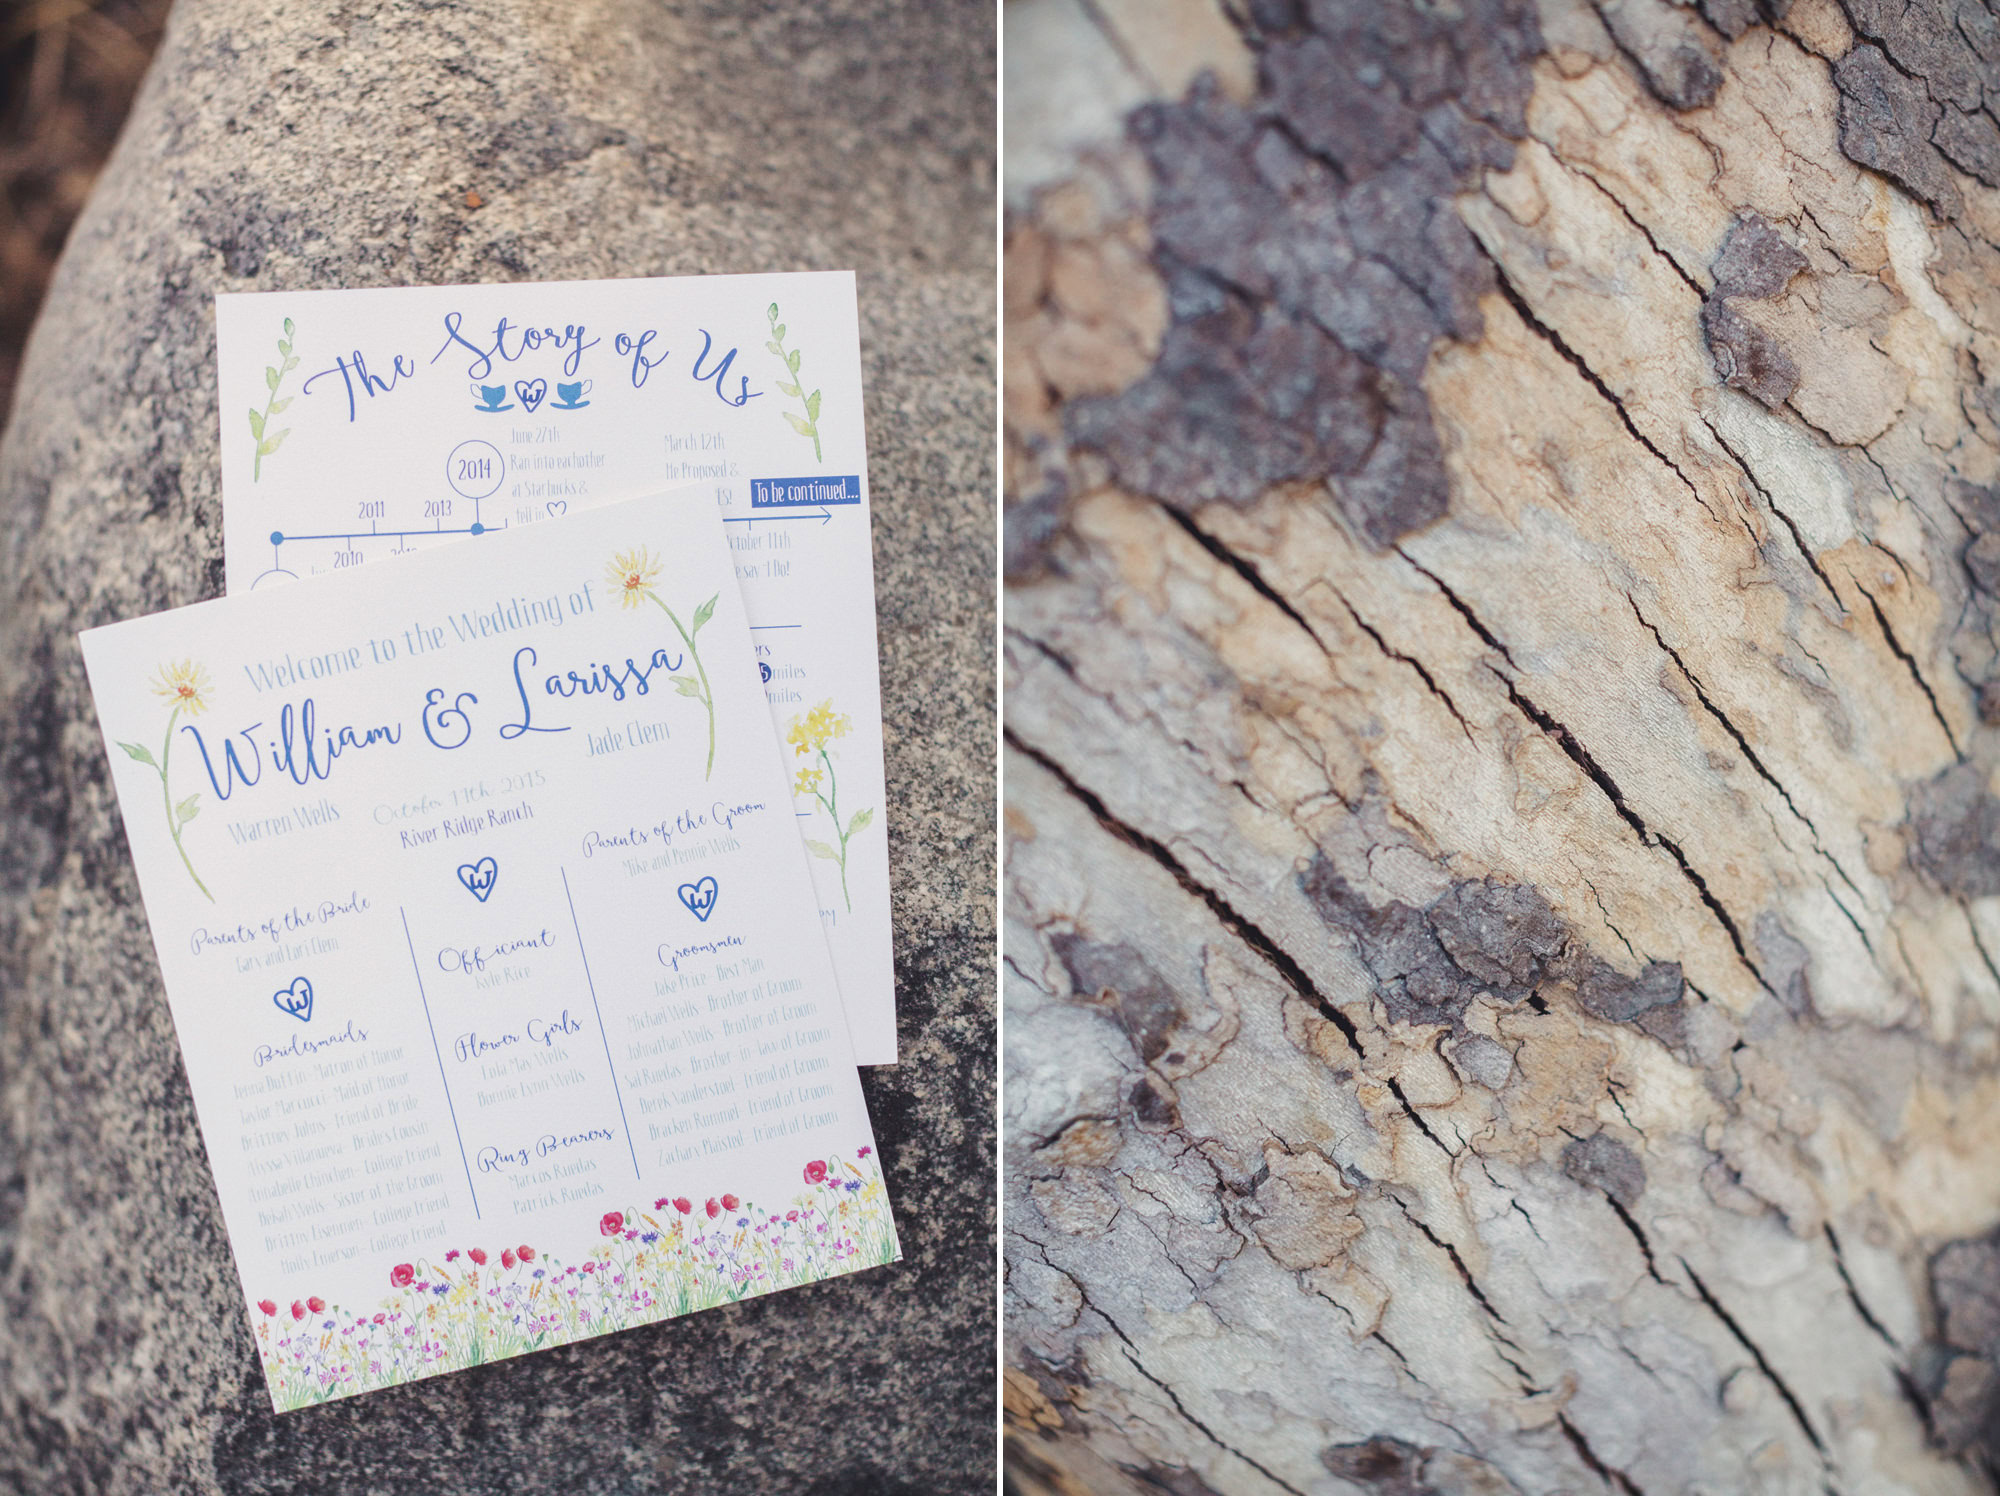 The Story of Us
W
June 27th
Ran into eachother
at Starbucks &
fell in
March 12th
He Proposed &
To be continued...
2014
2011
2013
2010
October 11th
say "I Do!
miles
miles
PM
Welcome to the Wedding of
William & Larissa
Warren Wells
Jade Clem
October 11th, 2015
River Ridge Ranch
Parents of the Bride
Gary and Lori Clem
W
Bridesmaids
Jenna Duffin - Matron of Honor
Taylor Marcucci - Maid of Honor
Brittney Johns - Friend of Bride
Alyssa Villanueva - Bride's Cousin
Annabelle Chinchen - College Friend
Bekah Wells - Sister of the Groom
Brittny Eisenmen - College Friend
Holly Emerson - College Friend
W
Officiant
Kyle Rice
Flower Girls
Lola May Wells
Bonnie Lynn Wells
Ring Bearers
Marcos Ruedas
Patrick Ruedas
Parents of the Groom
Mike and Pennie Wells
W
Groomsmen
Jake Price - Best Man
Michael Wells - Brother of Groom
Johnathan Wells - Brother of Groom
Sal Ruedas - Brother-in-law of Groom
Derek Vanderstoel - Friend of Groom
Bracken Rummel - Friend of Groom
Zachary Plaisted - Friend of Groom